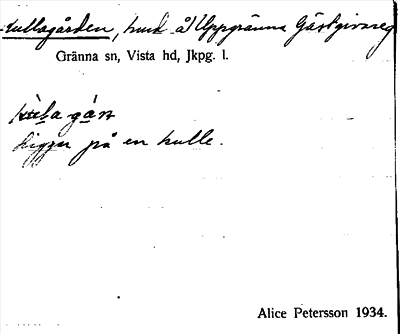 Kullagården, hmd å Uppgränna Gästgivareg
Gränna sn, Vista hd, Jkpg. l.
ligger på en kulle.
Alice Petersson 1934.